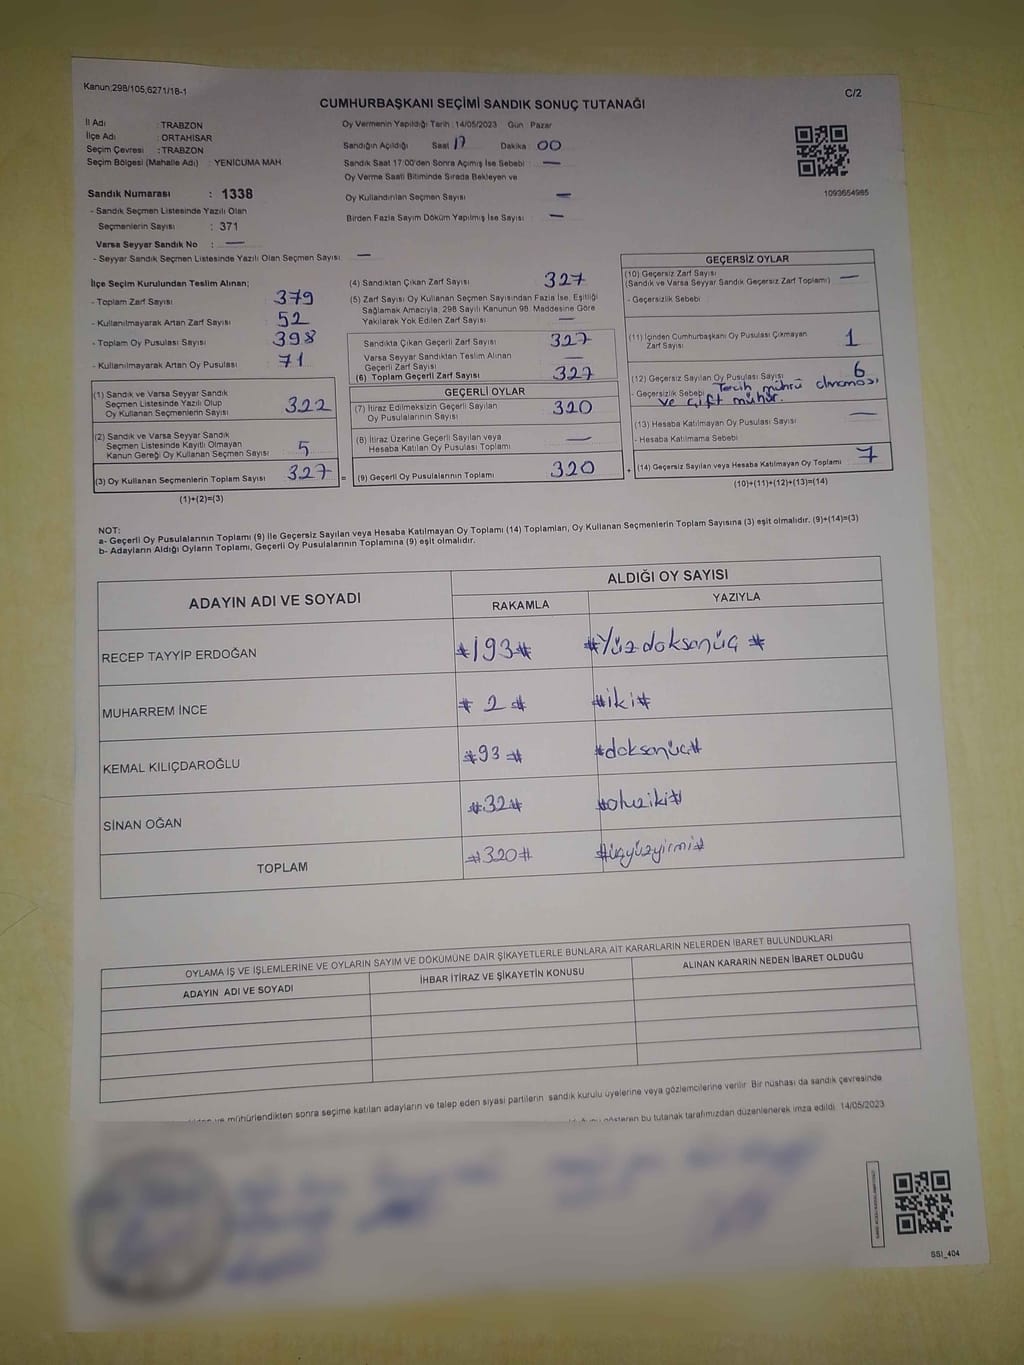 Kanun:298/105,6271/18-1
C/2
CUMHURBAŞKANI SEÇİMİ SANDIK SONUÇ TUTANAĞI
İl Adı : TRABZON
İlçe Adı : ORTAHİSAR
Seçim Çevresi : TRABZON
Seçim Bölgesi (Mahalle Adı) : YENİCUMA MAH
Sandık Numarası : 1338
- Sandık Seçmen Listesinde Yazılı Olan
Seçmenlerin Sayısı : 371
Varsa Seyyar Sandık No : —
- Seyyar Sandık Seçmen Listesinde Yazılı Olan Seçmen Sayısı: —
Oy Vermenin Yapıldığı Tarih : 14/05/2023 Gün : Pazar
Sandığın Açıldığı Saat 17 Dakika : 00
Sandık Saat 17:00'den Sonra Açımış İse Sebebi : —
Oy Verme Saati Bitiminde Sırada Bekleyen ve
Oy Kullandırılan Seçmen Sayısı : —
Birden Fazla Sayım Döküm Yapılmış İse Sayısı : —
1093654985
İlçe Seçim Kurulundan Teslim Alınan;
- Toplam Zarf Sayısı : 379
- Kullanılmayarak Artan Zarf Sayısı : 52
- Toplam Oy Pusulası Sayısı : 398
- Kullanılmayarak Artan Oy Pusulası : 71
(1) Sandık ve Varsa Seyyar Sandık
Seçmen Listesinde Yazılı Olup
Oy Kullanan Seçmenlerin Sayısı : 322
(2) Sandık ve Varsa Seyyar Sandık
Seçmen Listesinde Kayıtlı Olmayan
Kanun Gereği Oy Kullanan Seçmen Sayısı : 5
(3) Oy Kullanan Seçmenlerin Toplam Sayısı : 327 =
(1)+(2)=(3)
(4) Sandıktan Çıkan Zarf Sayısı : 327
(5) Zarf Sayısı Oy Kullanan Seçmen Sayısından Fazla İse, Eşitliği
Sağlamak Amacıyla, 298 Sayılı Kanunun 98. Maddesine Göre
Yakılarak Yok Edilen Zarf Sayısı : —
Sandıkta Çıkan Geçerli Zarf Sayısı : 327
Varsa Seyyar Sandıktan Teslim Alınan
Geçerli Zarf Sayısı : —
(6) Toplam Geçerli Zarf Sayısı : 327
GEÇERLİ OYLAR
(7) İtiraz Edilmeksizin Geçerli Sayılan
Oy Pusulalarının Sayısı : 320
(8) İtiraz Üzerine Geçerli Sayılan veya
Hesaba Katılan Oy Pusulası Toplamı : —
(9) Geçerli Oy Pusulalarının Toplamı : 320 +
GEÇERSİZ OYLAR
(10) Geçersiz Zarf Sayısı
(Sandık ve Varsa Seyyar Sandık Geçersiz Zarf Toplamı) : —
- Geçersizlik Sebebi :
(11) İçinden Cumhurbaşkanı Oy Pusulası Çıkmayan
Zarf Sayısı : 1
(12) Geçersiz Sayılan Oy Pusulası Sayısı : 6
- Geçersizlik Sebebi : Tercih mührü olmaması
ve çift mühür.
(13) Hesaba Katılmayan Oy Pusulası Sayısı : —
- Hesaba Katılmama Sebebi :
(14) Geçersiz Sayılan veya Hesaba Katılmayan Oy Toplamı : 7
(10)+(11)+(12)+(13)=(14)
NOT:
a- Geçerli Oy Pusulalarının Toplamı (9) ile Geçersiz Sayılan veya Hesaba Katılmayan Oy Toplamı (14) Toplamları, Oy Kullanan Seçmenlerin Toplam Sayısına (3) eşit olmalıdır. (9)+(14)=(3)
b- Adayların Aldığı Oyların Toplamı, Geçerli Oy Pusulalarının Toplamına (9) eşit olmalıdır.
ADAYIN ADI VE SOYADI
ALDIĞI OY SAYISI
RAKAMLA YAZIYLA
RECEP TAYYİP ERDOĞAN #193# #Yüzdoksanüç#
MUHARREM İNCE # 2 # #iki#
KEMAL KILIÇDAROĞLU #93# #doksanüç#
SİNAN OĞAN #32# #otuziki#
TOPLAM #320# #üçyüzyirmi#
OYLAMA İŞ VE İŞLEMLERİNE VE OYLARIN SAYIM VE DÖKÜMÜNE DAİR ŞİKAYETLERLE BUNLARA AİT KARARLARIN NELERDEN İBARET BULUNDUKLARI
ADAYIN ADI VE SOYADI İHBAR İTİRAZ VE ŞİKAYETİN KONUSU ALINAN KARARIN NEDEN İBARET OLDUĞU
mühürlendikten sonra seçime katılan adayların ve talep eden siyasi partilerin sandık kurulu üyelerine veya gözlemcilerine verilir. Bir nüshası da sandık çevresinde
gösteren bu tutanak tarafımızdan düzenlenerek imza edildi. 14/05/2023
SSI_404